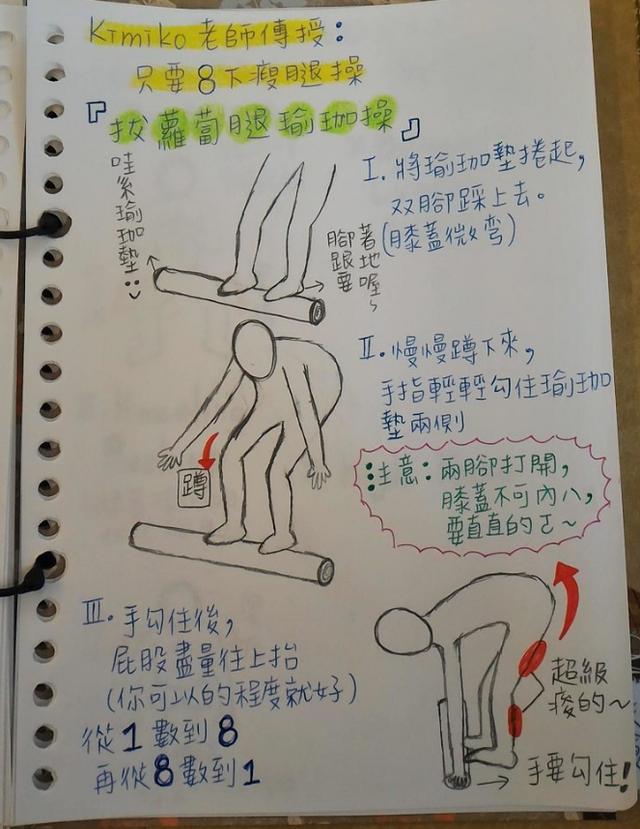 Kimiko 老師傳授:
只要8下瘦腿操
『拔蘿蔔腿瑜珈操』
哇系瑜珈墊
I. 將瑜珈墊捲起,
双腳踩上去。
(膝蓋微彎)
腳跟要
著地喔~
II. 慢慢蹲下來,
手指輕輕勾住瑜珈
墊兩側
蹲
注意: 兩腳打開,
膝蓋不可內八,
要直直的ㄛ~
III. 手勾住後,
屁股盡量往上抬
(你可以的程度就好)
從1數到8
再從8數到1
超級
痠的~
手要勾住!